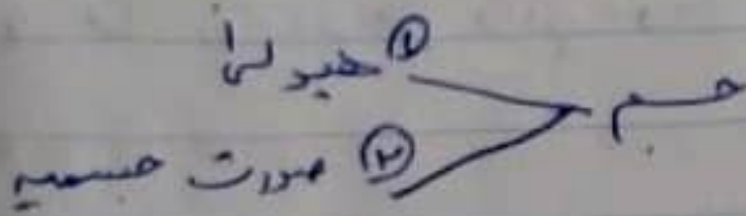 جسم
① ھیولیٰ
② صورت جسمیہ